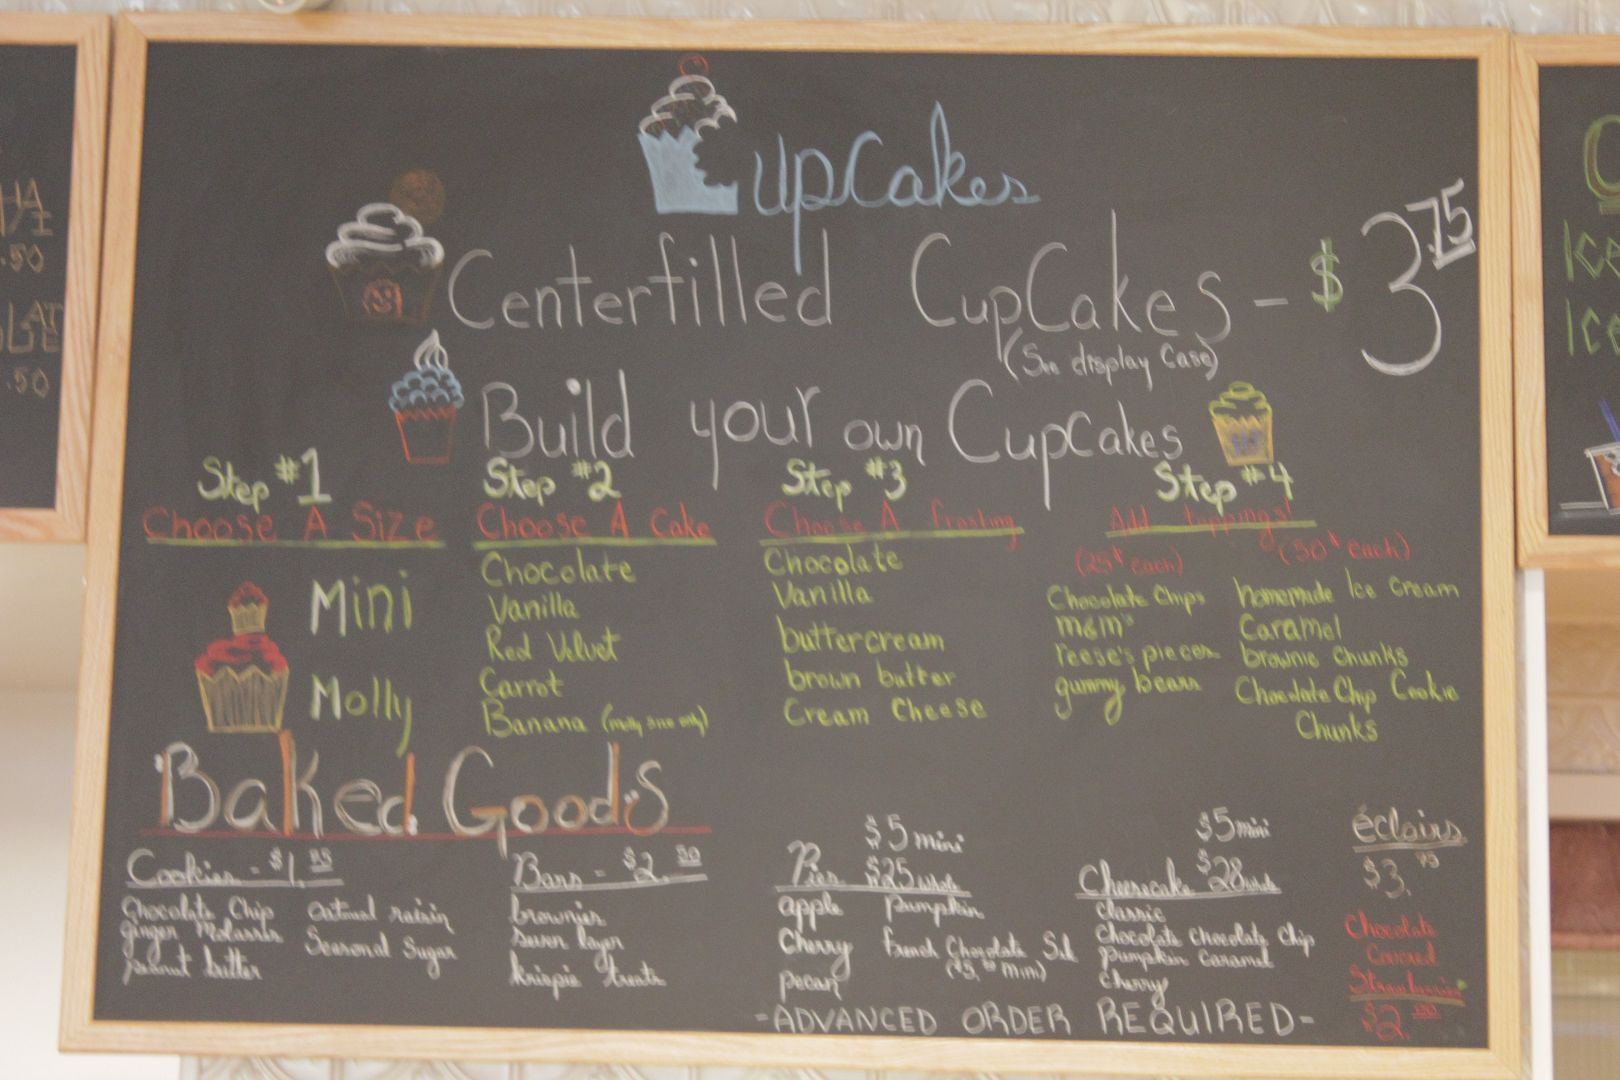 Cupcakes
Centerfilled CupCakes - $3.75
(See display Case)
Build your own CupCakes
Step #1
Choose A Size
Mini
Molly
Step #2
Choose A Cake
Chocolate
Vanilla
Red Velvet
Carrot
Banana (molly size only)
Step #3
Choose A frosting
Chocolate
Vanilla
buttercream
brown butter
Cream Cheese
Step #4
Add toppings!
(25¢ each)
Chocolate Chips
m&m's
reese's pieces
gummy bears
(50¢ each)
homemade Ice Cream
Caramel
brownie Chunks
Chocolate Chip Cookie
Chunks
Baked Goods
Cookies - $1.
Chocolate Chip
ginger Molasses
peanut butter
oatmeal raisin
Seasonal Sugar
Bars - $2.50
brownies
seven layer
krispie treats
$5 mini
Pies $25 whole
apple
Cherry
pecan
pumpkin
French Chocolate Silk
mini)
$5 mini
Cheesecake $28 whole
classic
Chocolate Chocolate Chip
pumpkin Caramel
Cherry
-ADVANCED ORDER REQUIRED-
éclairs
$3.75
Chocolate
Covered
Strawberries
$2.
.50
.50
Ice
Ice